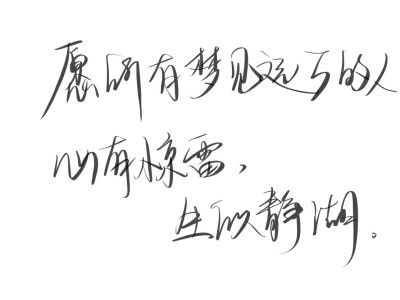 愿所有梦见远方的人
心有惊雷，
生似静湖。